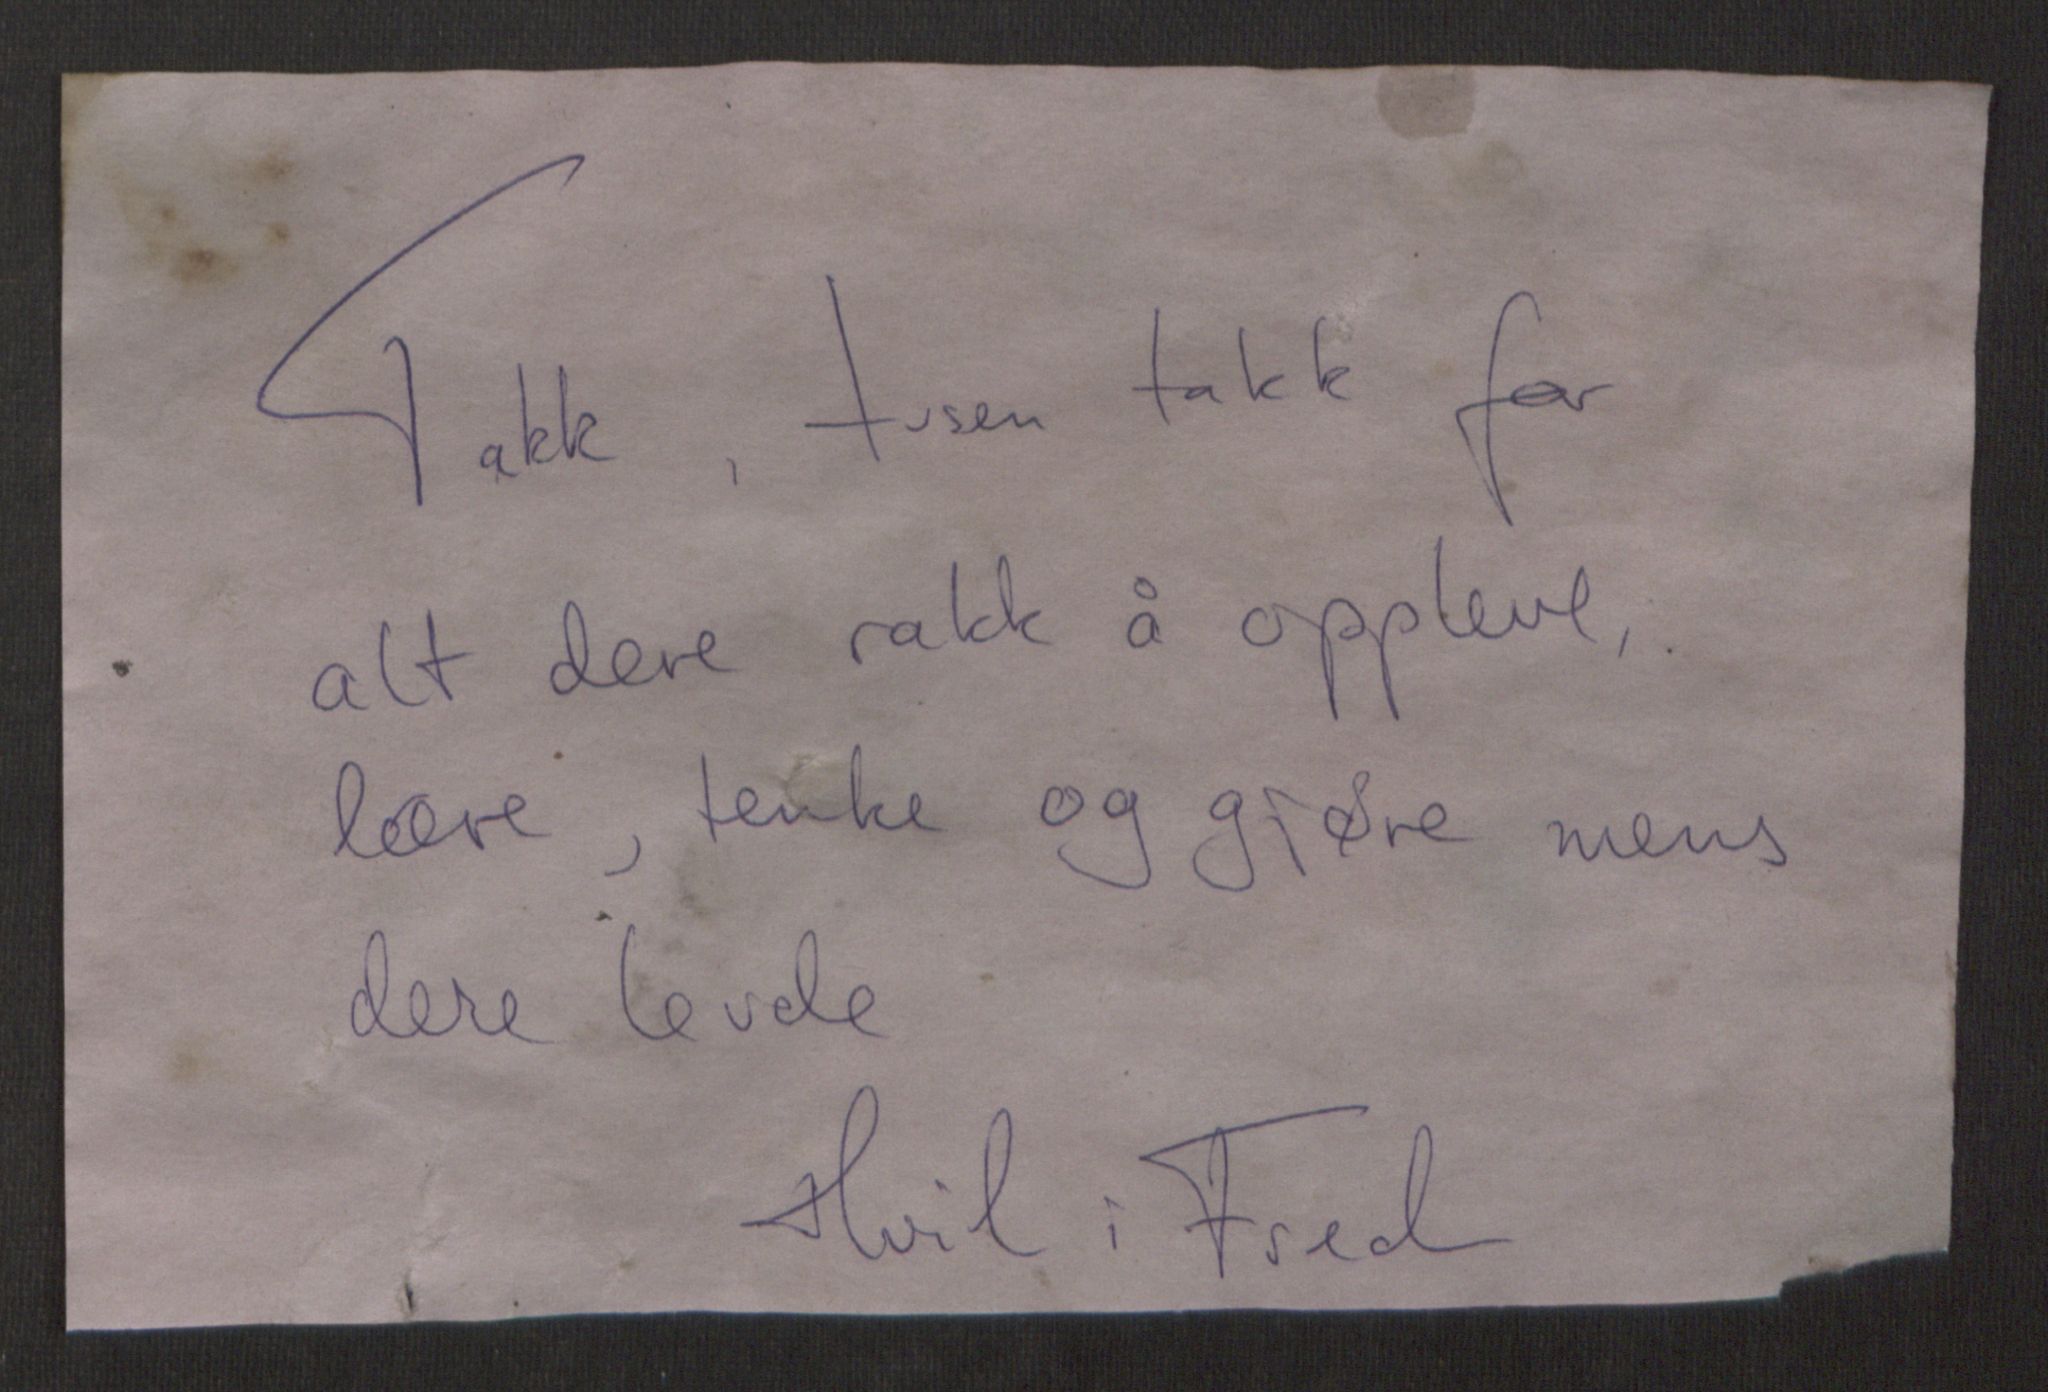 Takk, tusen takk for
alt dere rakk å oppleve,
lære, tenke og gjøre mens
dere levde
Hvil i Fred